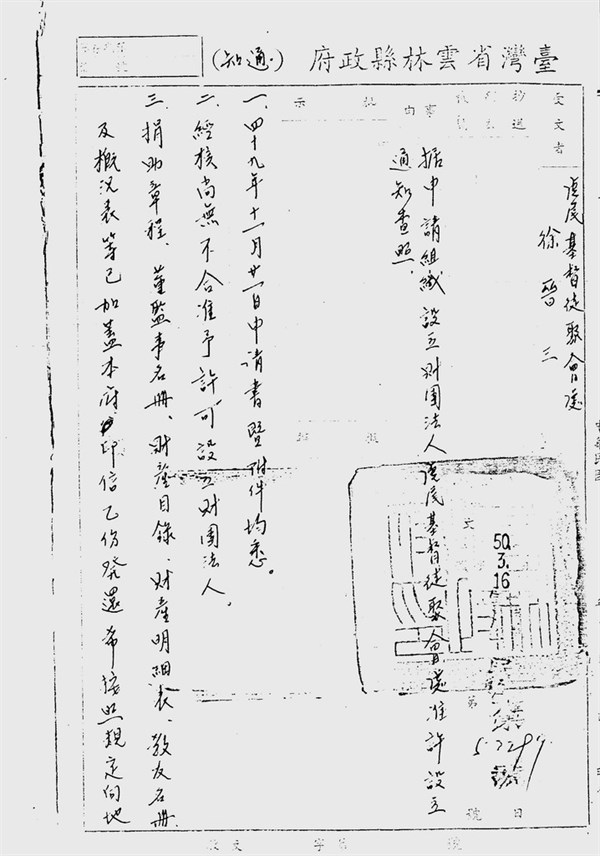 臺灣省雲林縣政府(通知)
受文者
虎尾基督徒聚會處
徐晉三
事由
据申請組織設立財團法人虎尾基督徒聚會處准許設立
通知查照.
批示
文
50.3.16
第
號
日
一、四十九年十一月廿一日申請書暨附件均悉。
二、經核尚無不合准予許可設立財團法人.
三、捐助章程、董監事名冊、財產目錄、財產明細表、教友名冊
及概況表等已加蓋本府印信乙份發還希按照規定向地